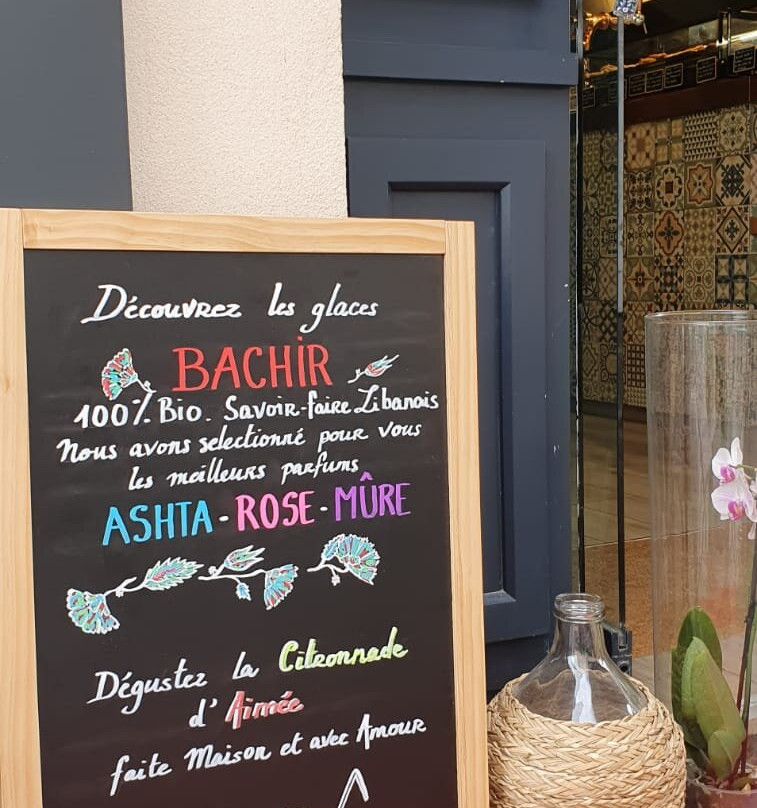 Découvrez les glaces
BACHIR
100% Bio. Savoir-faire Libanais
Nous avons selectionné pour vous
les meilleurs parfums
ASHTA - ROSE - MÛRE
Dégustez la Citronnade
d'Aimée
faite Maison et avec Amour